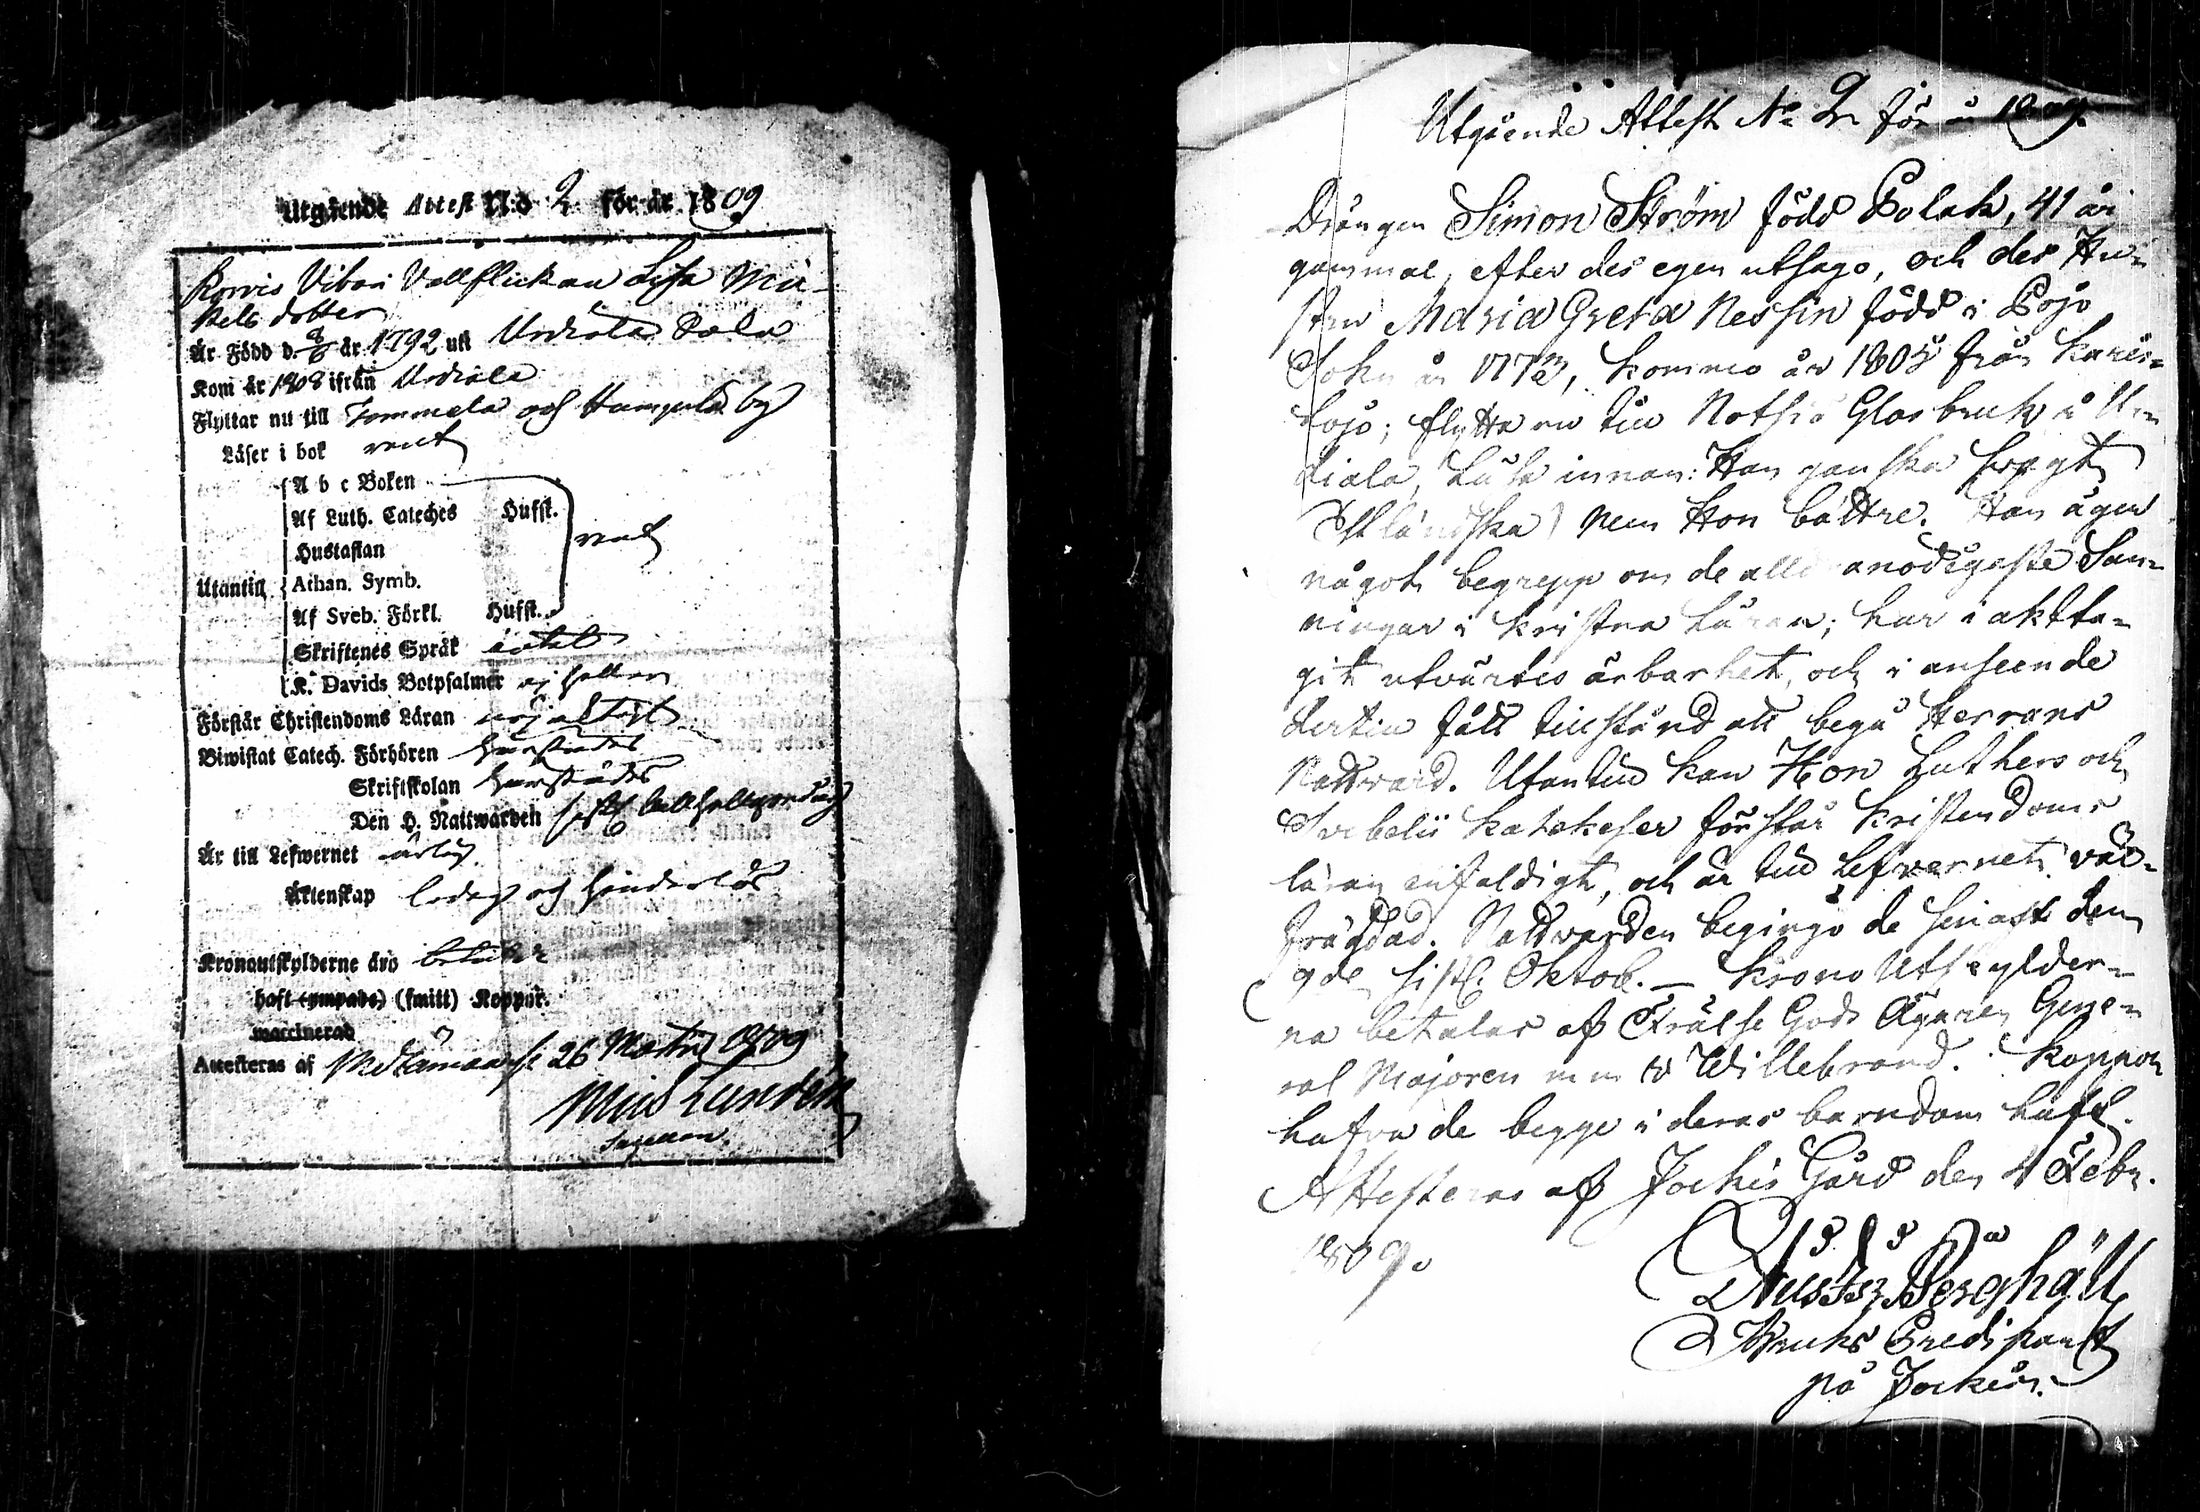 Utgående Attest N:o 2 för år 1809
Vallflickan Lisa Mi-
dotter
År Född d. år 1792 uti Urdiala
Kom år 1808 ifrån Urdiala
Flyttar nu till Tammela och by
Läser i bok rent
A b c Boken
Af Luth. Cateches Hufst.
Hustaflan
rent
Utantill
Athan. Symb.
Af Sveb. Förkl. Hufst.
Skriftenes Språk
K. Davids Botpsalmer ej heller
Förstår Christendoms Läran nöjaktigt
Biwistat Catech. Förhören härstädes
Skriftskolan härstädes
Den H. Nattwarden sistl.
Är till Lefwernet ärlig
Äktenskap ledig och hinderlös
Kronoutskylderne äro betalte
haft (ympade) (smitt) Koppor.
vaccinerad
Attesteras af 26 1809
Lundén
Sacellan.
Utgående Attest No 2 för år 1809.
Drängen Simon Ström född Polak, 41 år
gammal, efter des egen utsago, och des Hu-
stru Maria Greta Nessin född i Pojo
Sokn år 1773, kommo år 1805 från Karis-
Lojo; flytta nu till Notsiö Glasbruk i Ur-
diala, Läsa innan: Han ganska svagt
Estländska) men Hon bättre. Han äger
något begrepp om de alldranödigaste San-
ningar i Kristna Läran; har iaktta-
git utvärtes ärbarhet, och i anseende
dertill fått tillstånd att begå Herrans
Nattvard. Utantill kan Hon Luthers och
Svebelii Katekeser förstår Kristendoms
läran enfaldigt, och är till Lefvernet väl-
frägdad. Nattvarden begingo de senast den
9de sistl. Oktob. – Krono Utskylder-
na betalas af Frälse Gods Ägaren Gene-
ral Majoren m m v Willebrand. Koppor
hafva de begge i deras barndom haft.
Attesteras af Jockis Gård den 4 Febr.
1809.
Berghäll
Bruks Predikant
på Jockis.